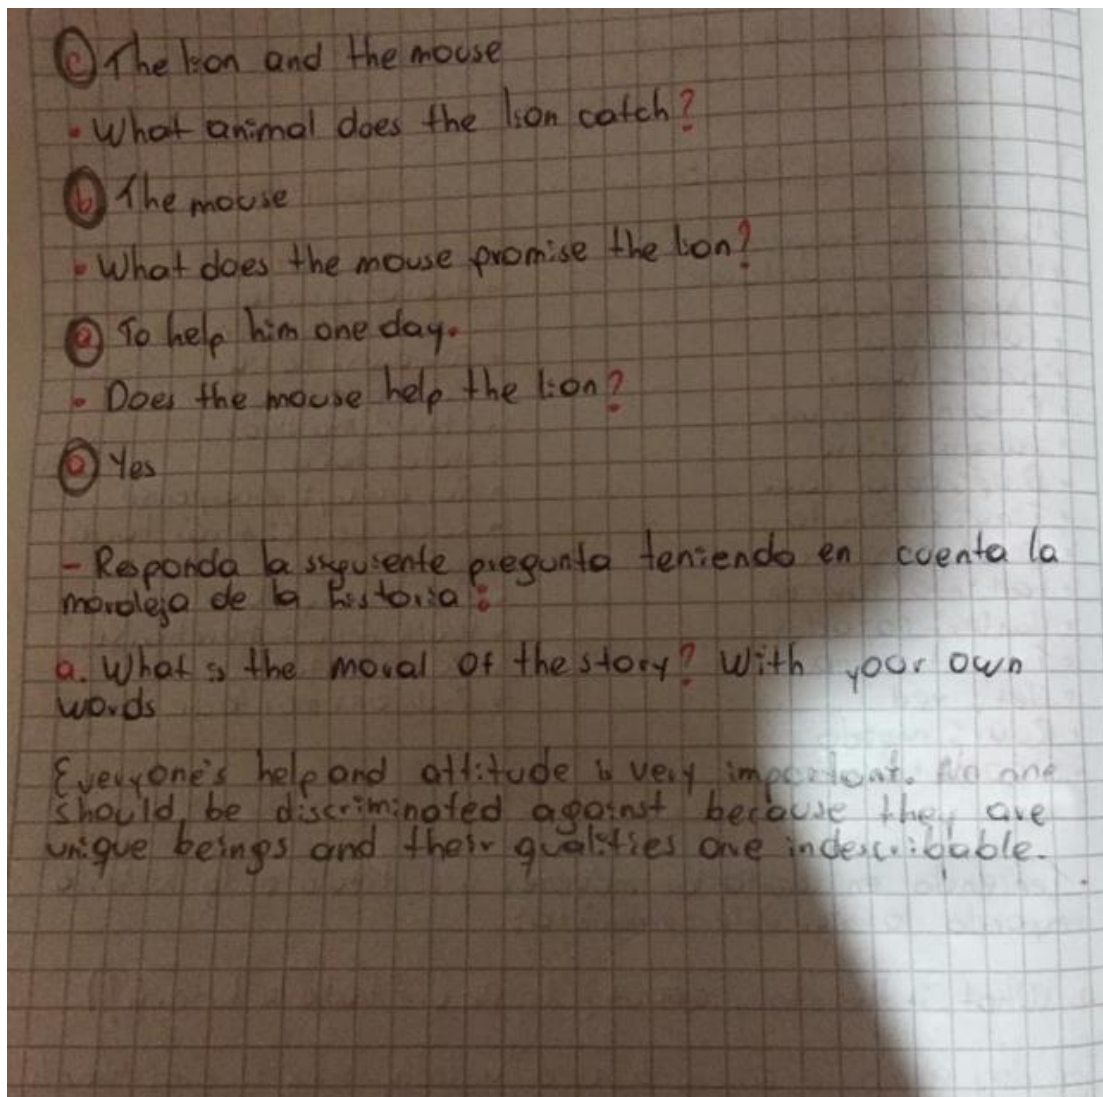 c The lion and the mouse
• What animal does the lion catch?
b The mouse
• What does the mouse promise the lion?
a To help him one day.
• Does the mouse help the lion?
Yes
- Responda la siguiente pregunta teniendo en cuenta la
moraleja de la historia:
a. What is the moral of the story? With your own
words
Everyone's help and attitude is very important. No one
should be discriminated against because they are
unique beings and their qualities are indescribable.